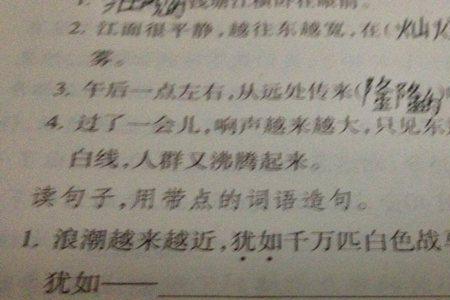 钱塘江横卧在眼前。
2. 江面很平静,越往东越宽,在(灿
雾。
3. 午后一点左右,从远处传来(隆隆的
4. 过了一会儿,响声越来越大,只见东
白线,人群又沸腾起来。
读句子,用带点的词语造句。
1. 浪潮越来越近,犹如千万匹白色战
犹如——